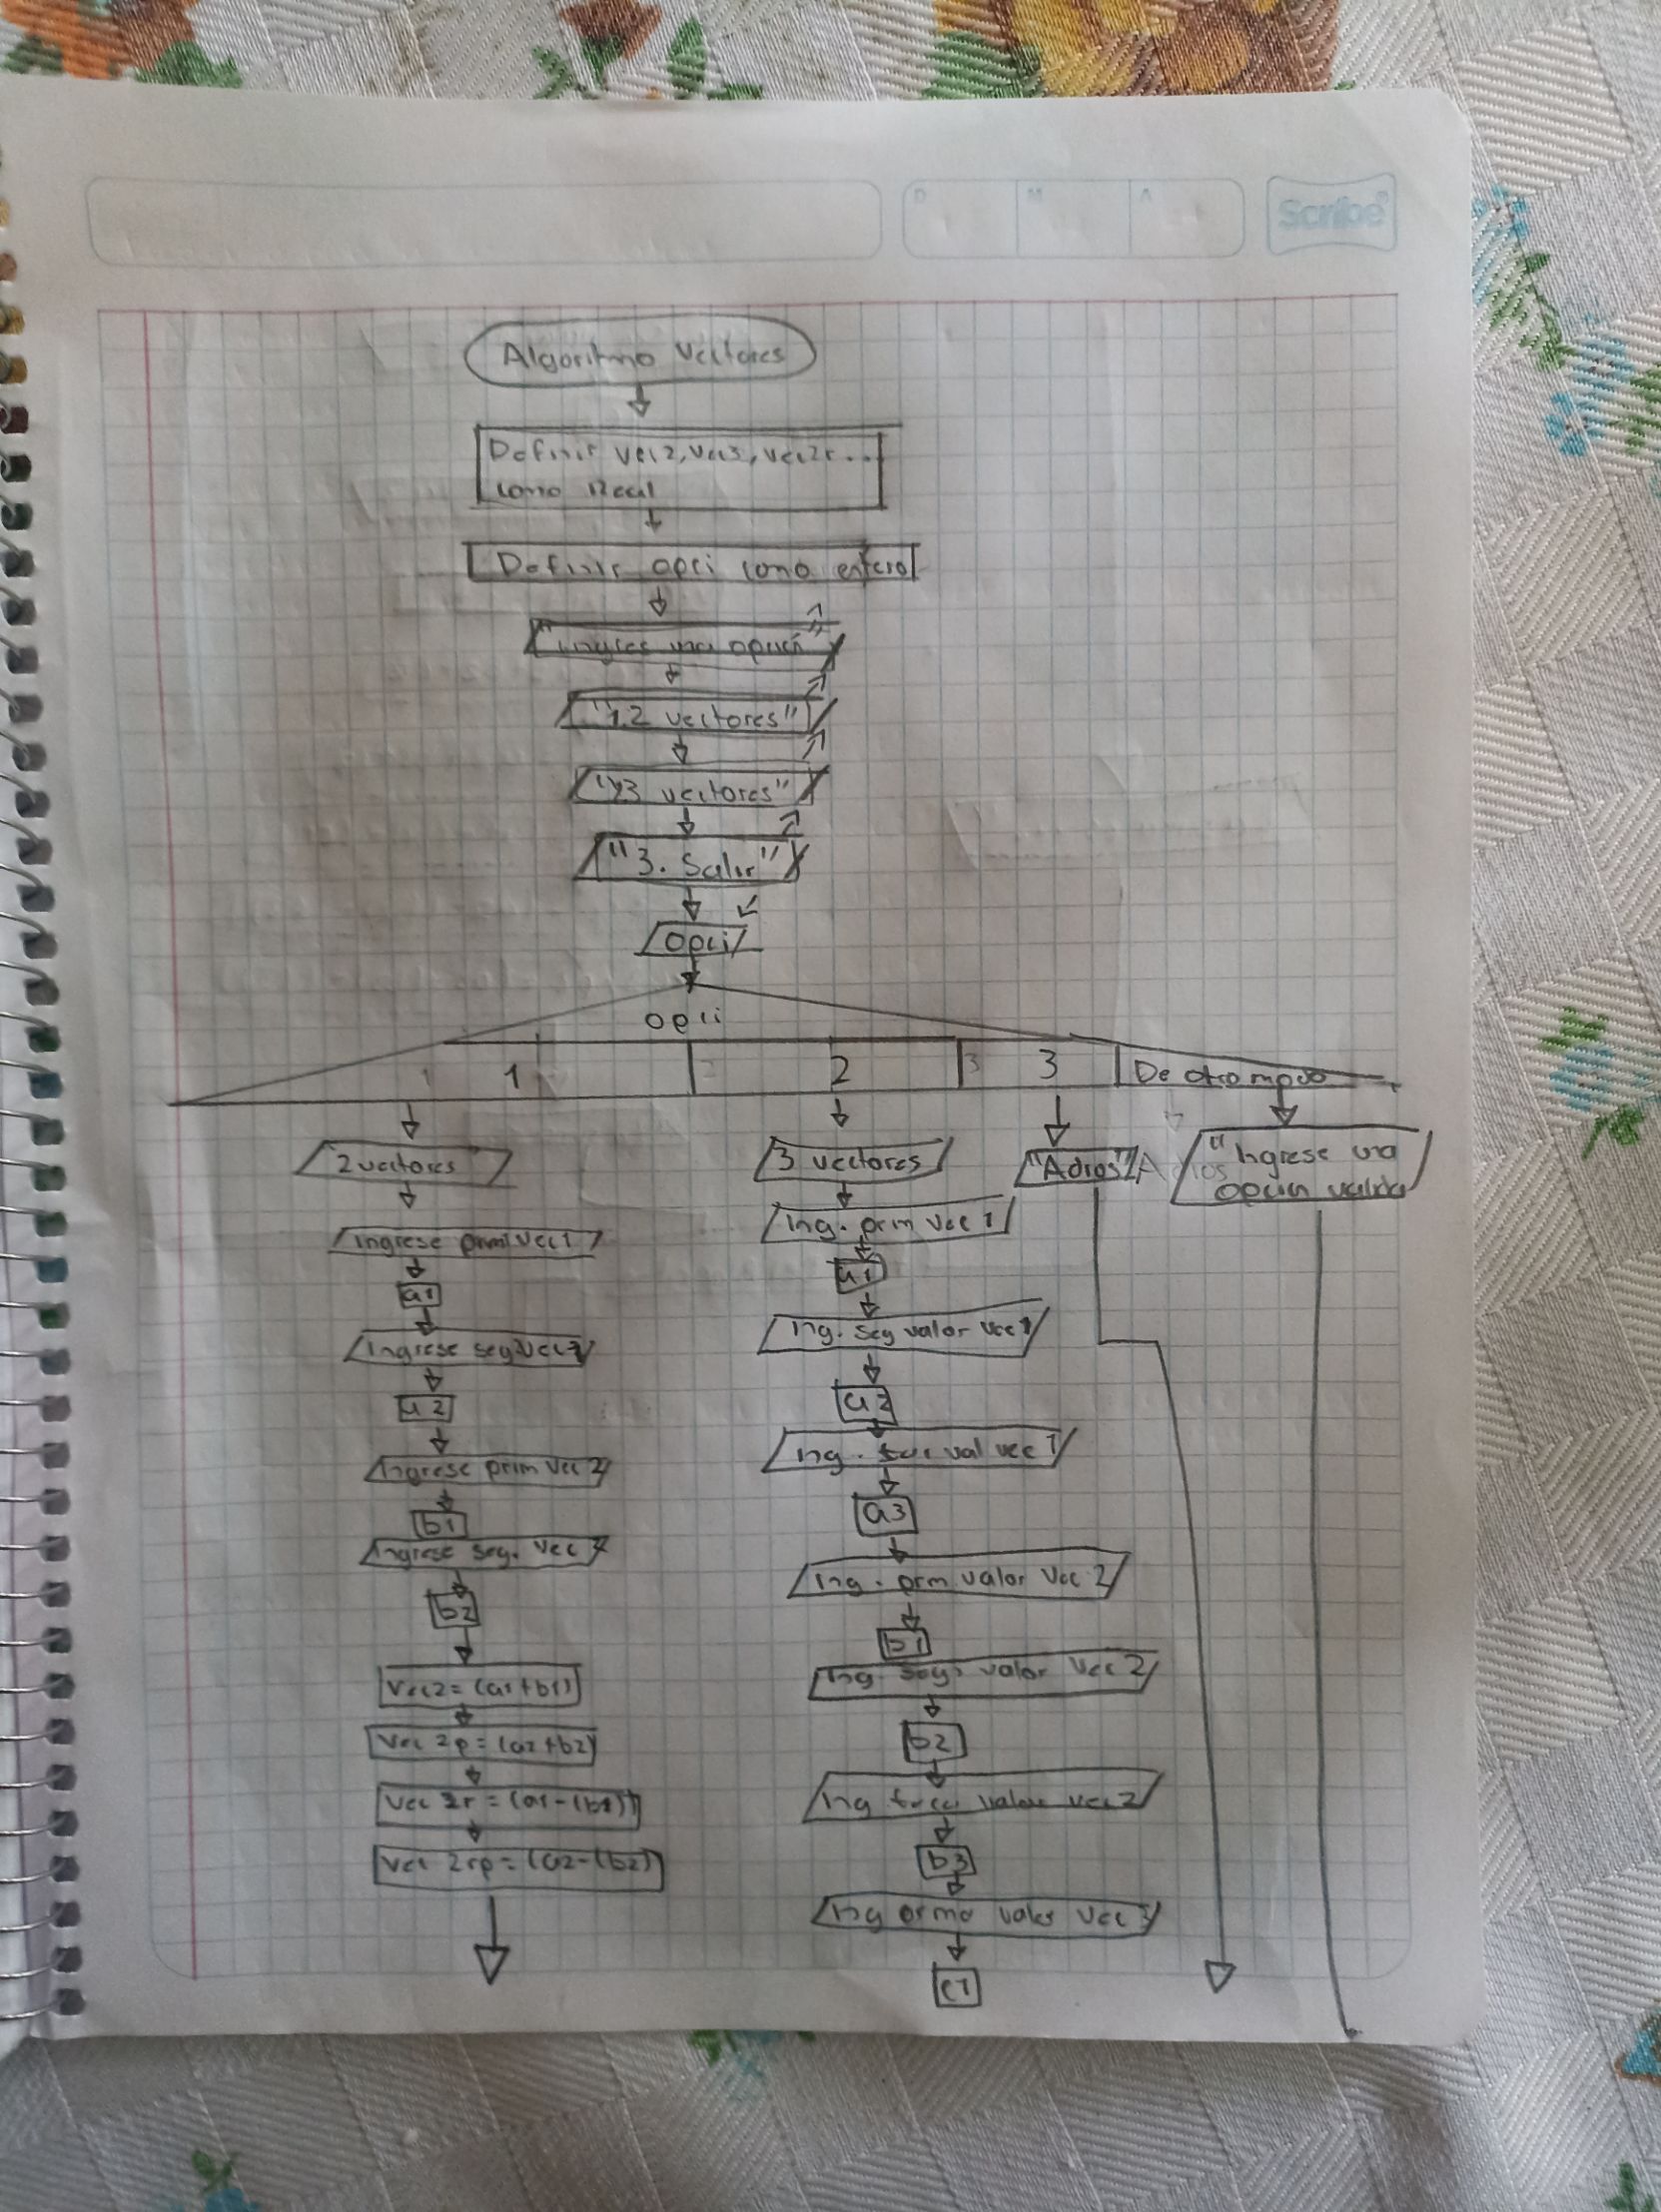 D
M
A
Scribe
Algoritmo Vectores
Definir vec2, vec3, vec2r...
como Real
Definir opci como entero
"ingres una opción"
"1.2 vectores"
3 vectores"
"3. Salir"
opci
opci
1
2
3
De otro modo
"2 vectores"
Ingrese prim vec 1
a1
Ingrese seg vec
a2
Ingrese prim vec 2
b1
Ingrese seg. vec
b2
Vec2 = (a1+b1)
Vec 2p = (a2+b2)
Vec 2r = (a1-(b1))
Vec 2rp = (a2-(b2))
3 vectores
Ing. prm vec 1
a1
Ing. seg valor vec 1
a2
Ing. val vec 1
a3
Ing. prm valor vec 2
b1
Ing. seg valor vec 2
b2
Ing valor vec 2
b3
Ing vec 3
c1
"Adios"
"Ingrese una
opcin valida